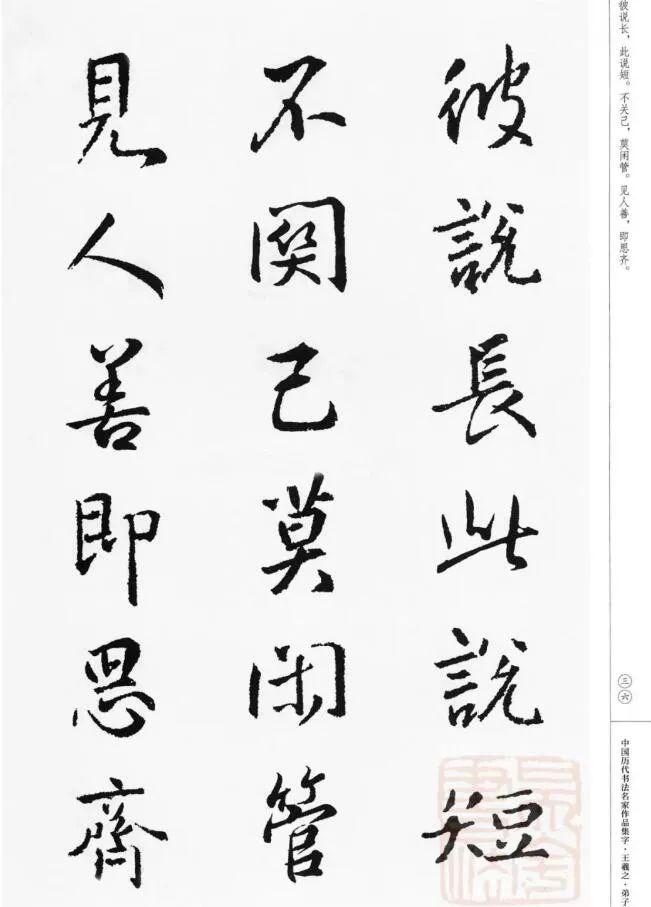 彼说长，此说短。不关己，莫闲管。见人善，即思齐。
彼說長此說短
不關己莫閑管
見人善即思齊
三六
中国历代书法名家作品集字·王羲之·弟子